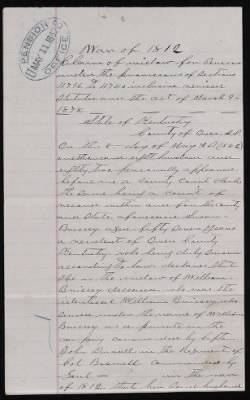 PENSION OFFICE
MAY 11
War of 1812
Claim of widow for Pension
under the provisions of Sections
4736 to 4740 inclusive revised
Statutes and the act of March 9
1878.
State of Kentucky
County of Owen SS
On this 8 day of May A.D.
one thousand eight hundred and
eighty two personally appeared
before me a County Court Clerk
the same being a Court of
record within and for the County
and State aforesaid Susan
Brissey aged fifty seven years
a resident of Owen County
Kentucky who being duly sworn
according to law declares that
she is the widow of William
Brissey deceased who was the
identical William Brissey who
served under the name of William
Brissey as a private in the
company commanded by Capt
John Russell in the Regiment of
Col Boswell commanded by
Genl in the war
of 1812 that her said husband